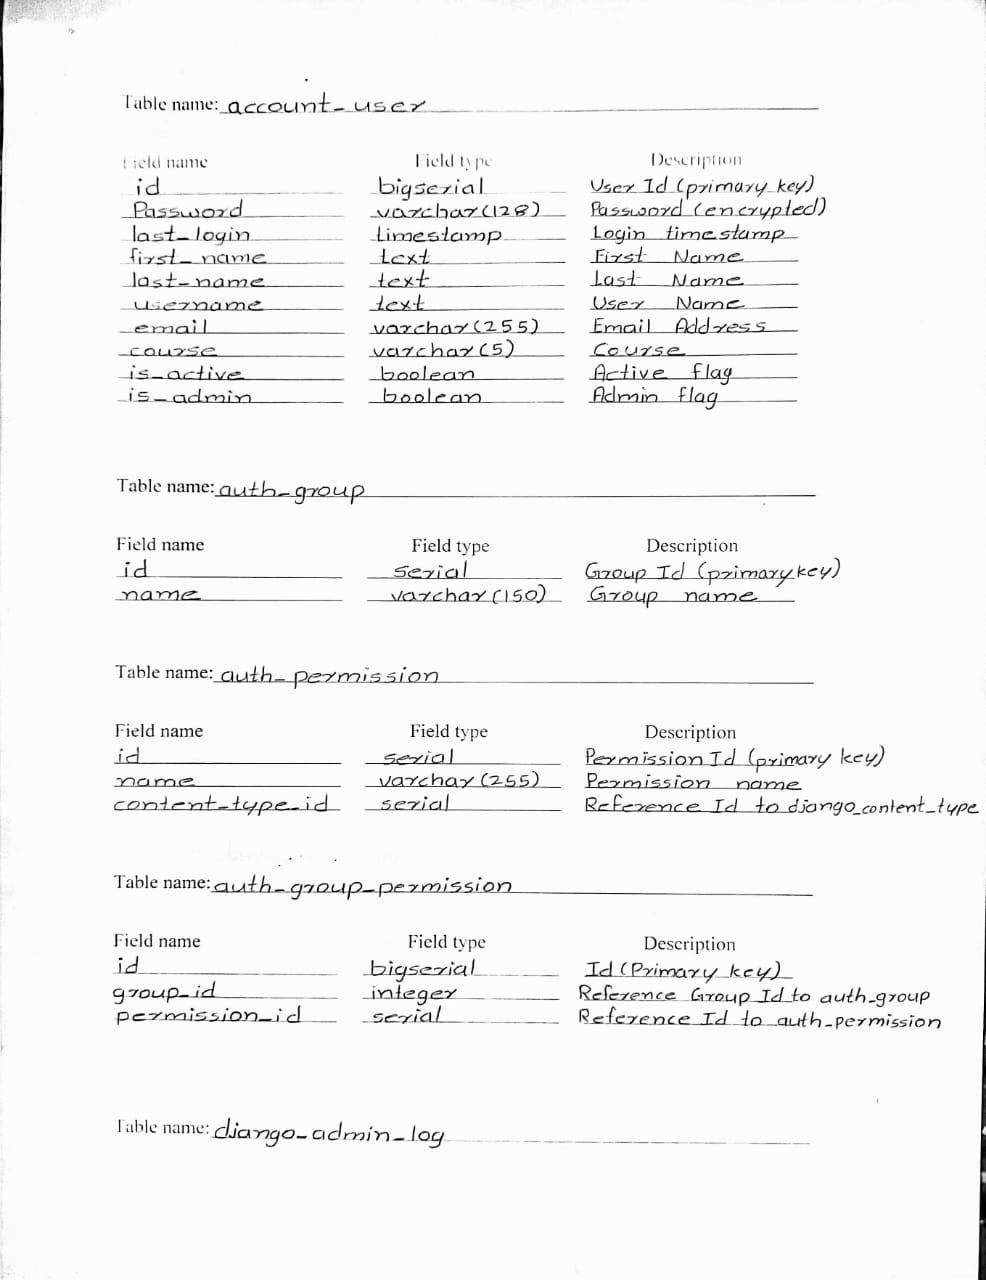 Table name: account_user
Field name Field type Description
id bigserial User Id (primary key)
Password varchar(128) Password (encrypted)
last_login timestamp Login timestamp
first_name text First Name
last_name text Last Name
username text User Name
email varchar(255) Email Address
course varchar(5) Course
is_active boolean Active flag
is_admin boolean Admin flag
Table name: auth_group
Field name Field type Description
id serial Group Id (primary key)
name varchar(150) Group name
Table name: auth_permission
Field name Field type Description
id serial Permission Id (primary key)
name varchar(255) Permission name
content_type_id serial Reference Id to django_content_type
Table name: auth_group_permission
Field name Field type Description
id bigserial Id (Primary key)
group_id integer Reference Group Id to auth_group
permission_id serial Reference Id to auth_permission
Table name: django_admin_log